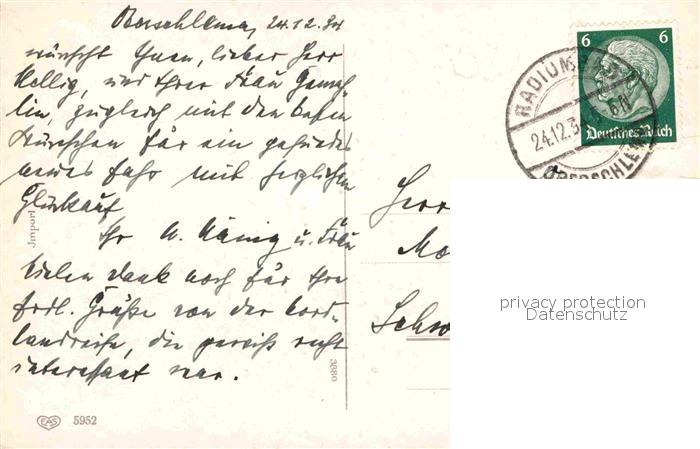 Oberschlema, 24.12.34
wünscht Ihnen, lieber Herr
Hellig, und Ihrer Frau Gemah-
lin, zugleich mit den besten
Wünschen für ein gesundes
neues Jahr mit herzlichem
Glückauf
Ihr W. König u. Frau
Vielen Dank noch für Ihre
frdl. Grüße von der Nord-
landreise, die gewiß recht
interessant war.
Import
3880
EAS 5952
6 6
Deutsches Reich
RADIUMBAD
24.12.3
OBERSCHLEMA
Herr
Schw
privacy protection
Datenschutz